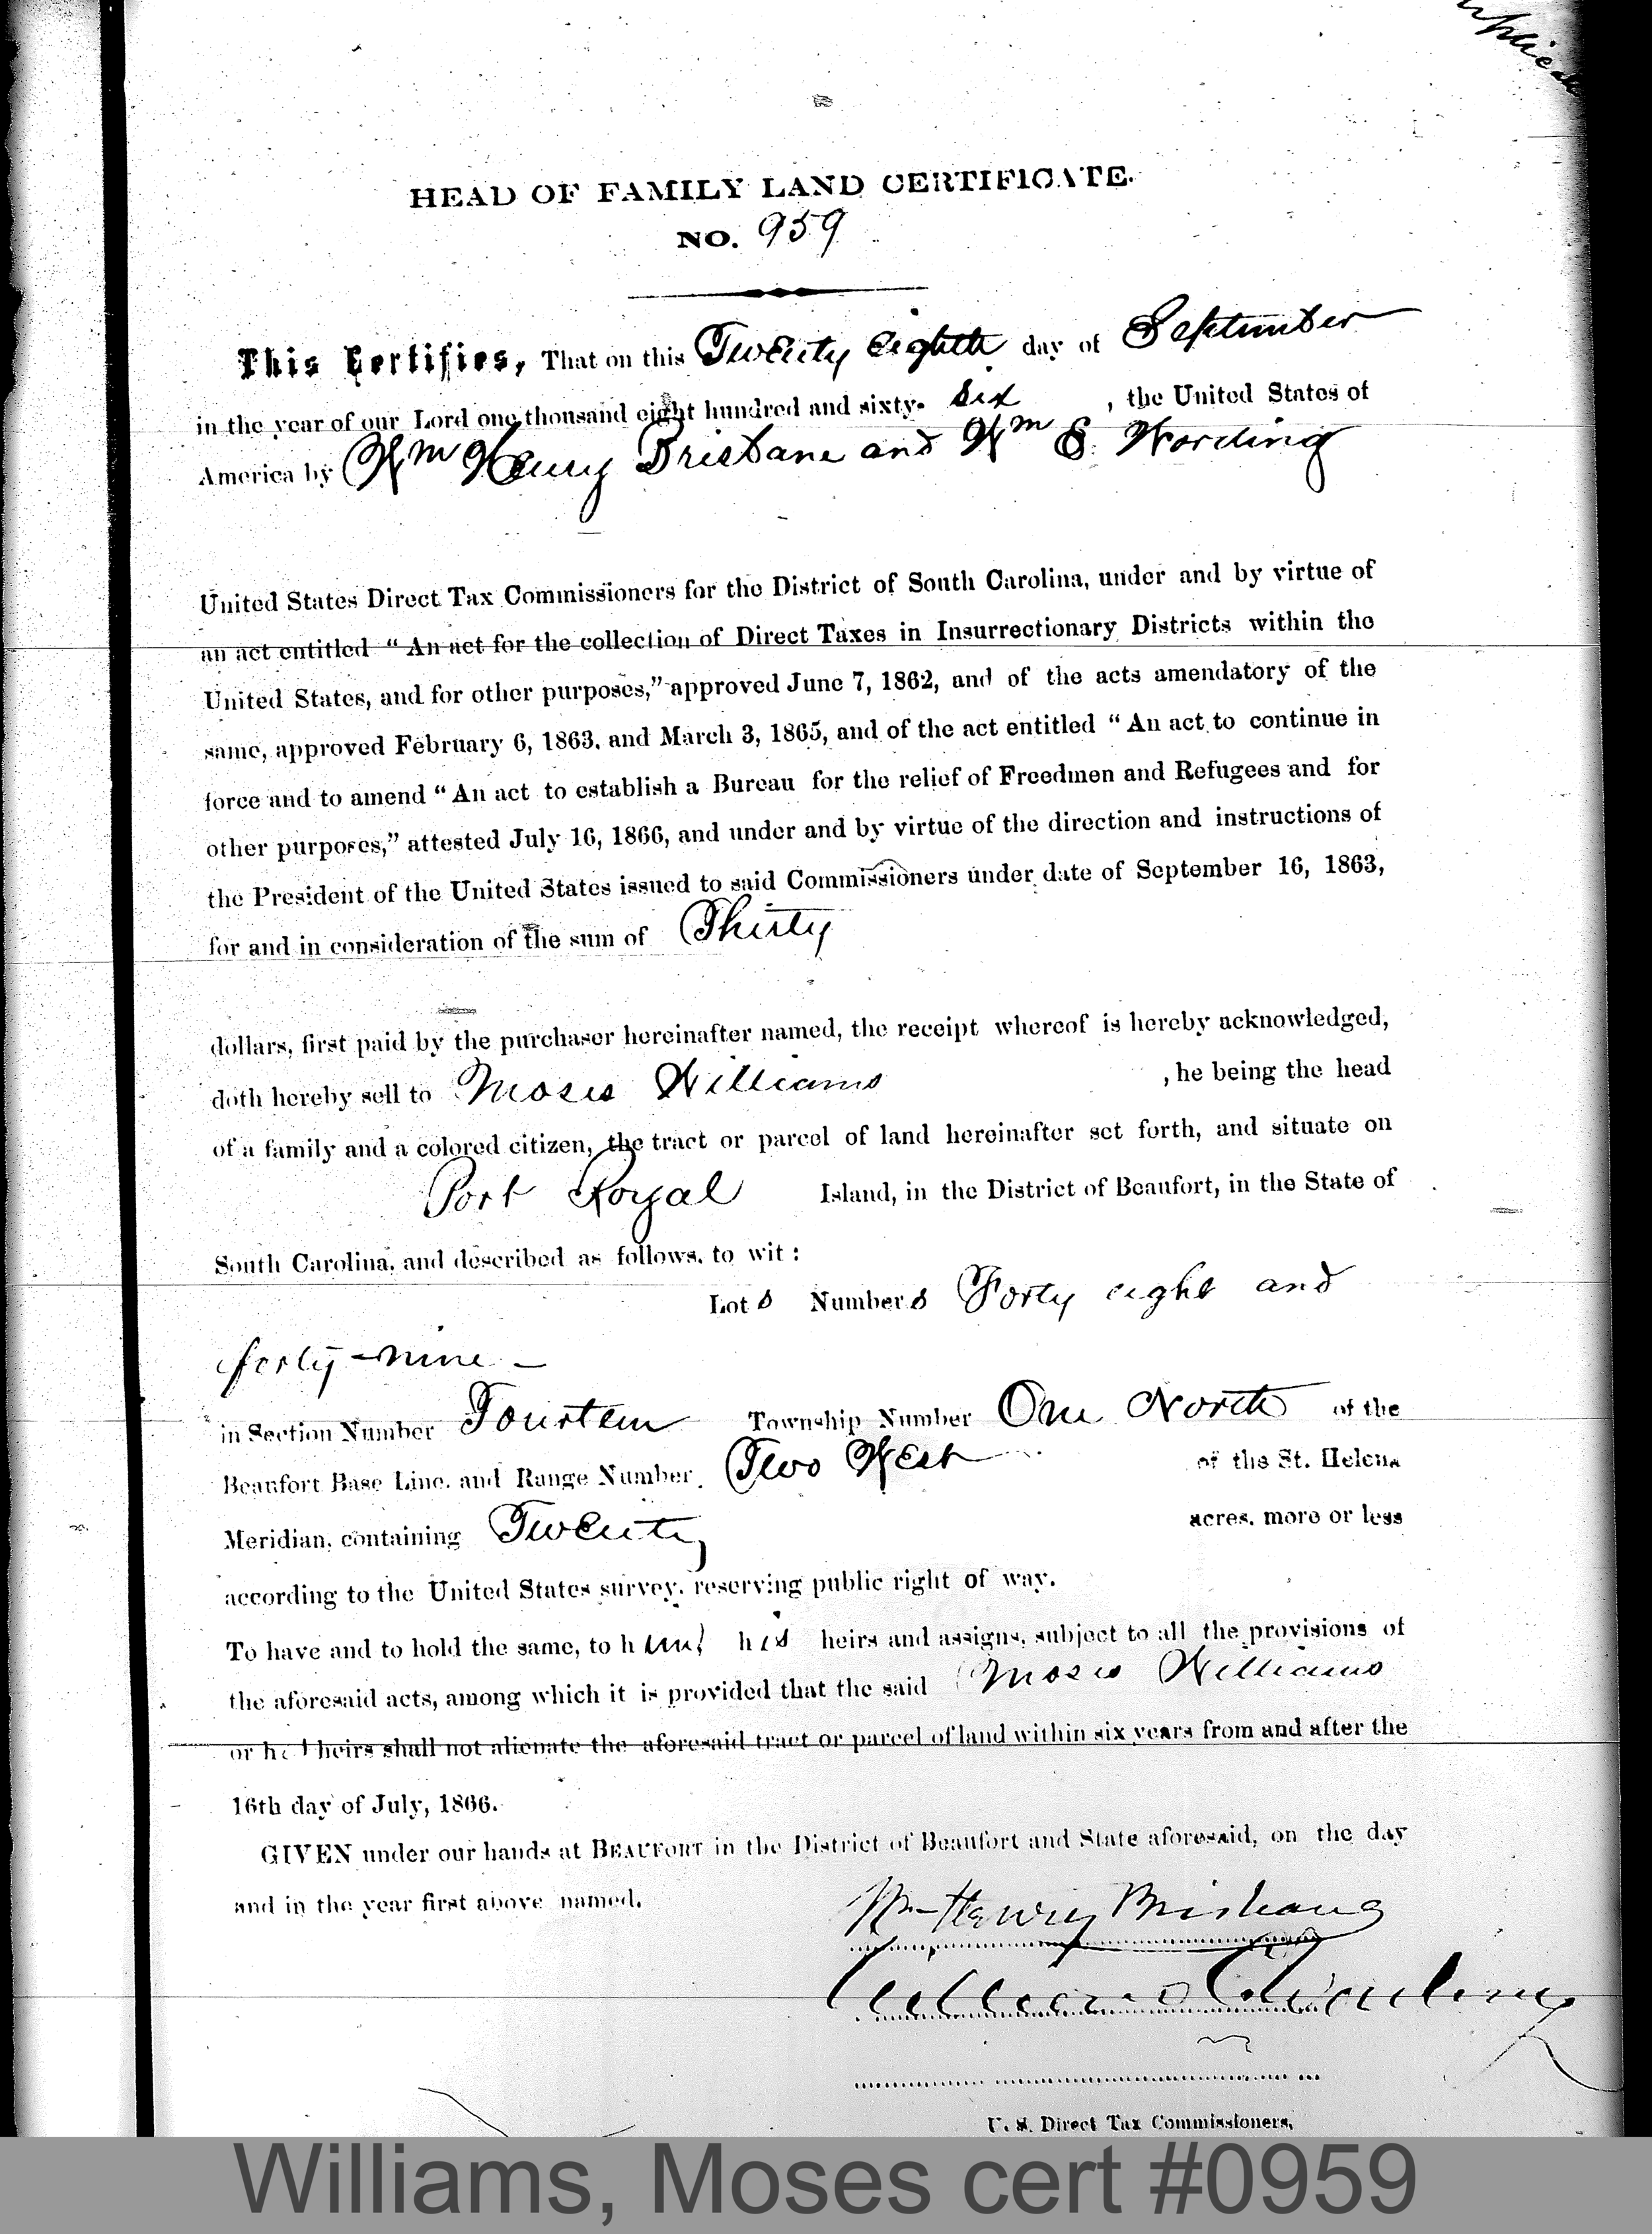 HEAD OF FAMILY LAND CERTIFICATE.
NO. 959
This Certifies, That on this Twenty eighth day of September
in the year of our Lord one thousand eight hundred and sixty- six , the United States of
America by Wm Henry Brisbane and Wm E. Wording
United States Direct Tax Commissioners for the District of South Carolina, under and by virtue of
an act entitled “An act for the collection of Direct Taxes in Insurrectionary Districts within the
United States, and for other purposes,” approved June 7, 1862, and of the acts amendatory of the
same, approved February 6, 1863, and March 3, 1865, and of the act entitled “An act to continue in
force and to amend “An act to establish a Bureau for the relief of Freedmen and Refugees and for
other purposes,” attested July 16, 1866, and under and by virtue of the direction and instructions of
the President of the United States issued to said Commissioners under date of September 16, 1863,
for and in consideration of the sum of Thirty
dollars, first paid by the purchaser hereinafter named, the receipt whereof is hereby acknowledged,
doth hereby sell to Moses Williams , he being the head
of a family and a colored citizen, the tract or parcel of land hereinafter set forth, and situate on
Port Royal Island, in the District of Beaufort, in the State of
South Carolina, and described as follows, to wit:
Lots Numbers Forty eight and
forty-nine –
in Section Number Fourteen Township Number One North of the
Beaufort Base Line, and Range Number Two West of the St. Helena
Meridian, containing Twenty acres, more or less
according to the United States survey, reserving public right of way.
To have and to hold the same, to him, his heirs and assigns, subject to all the provisions of
the aforesaid acts, among which it is provided that the said Moses Williams
or his heirs shall not alienate the aforesaid tract or parcel of land within six years from and after the
16th day of July, 1866.
GIVEN under our hands at BEAUFORT in the District of Beaufort and State aforesaid, on the day
and in the year first above named.
Wm Henry Brisbane
William E. Wording
U. S. Direct Tax Commissioners,
Williams, Moses cert #0959